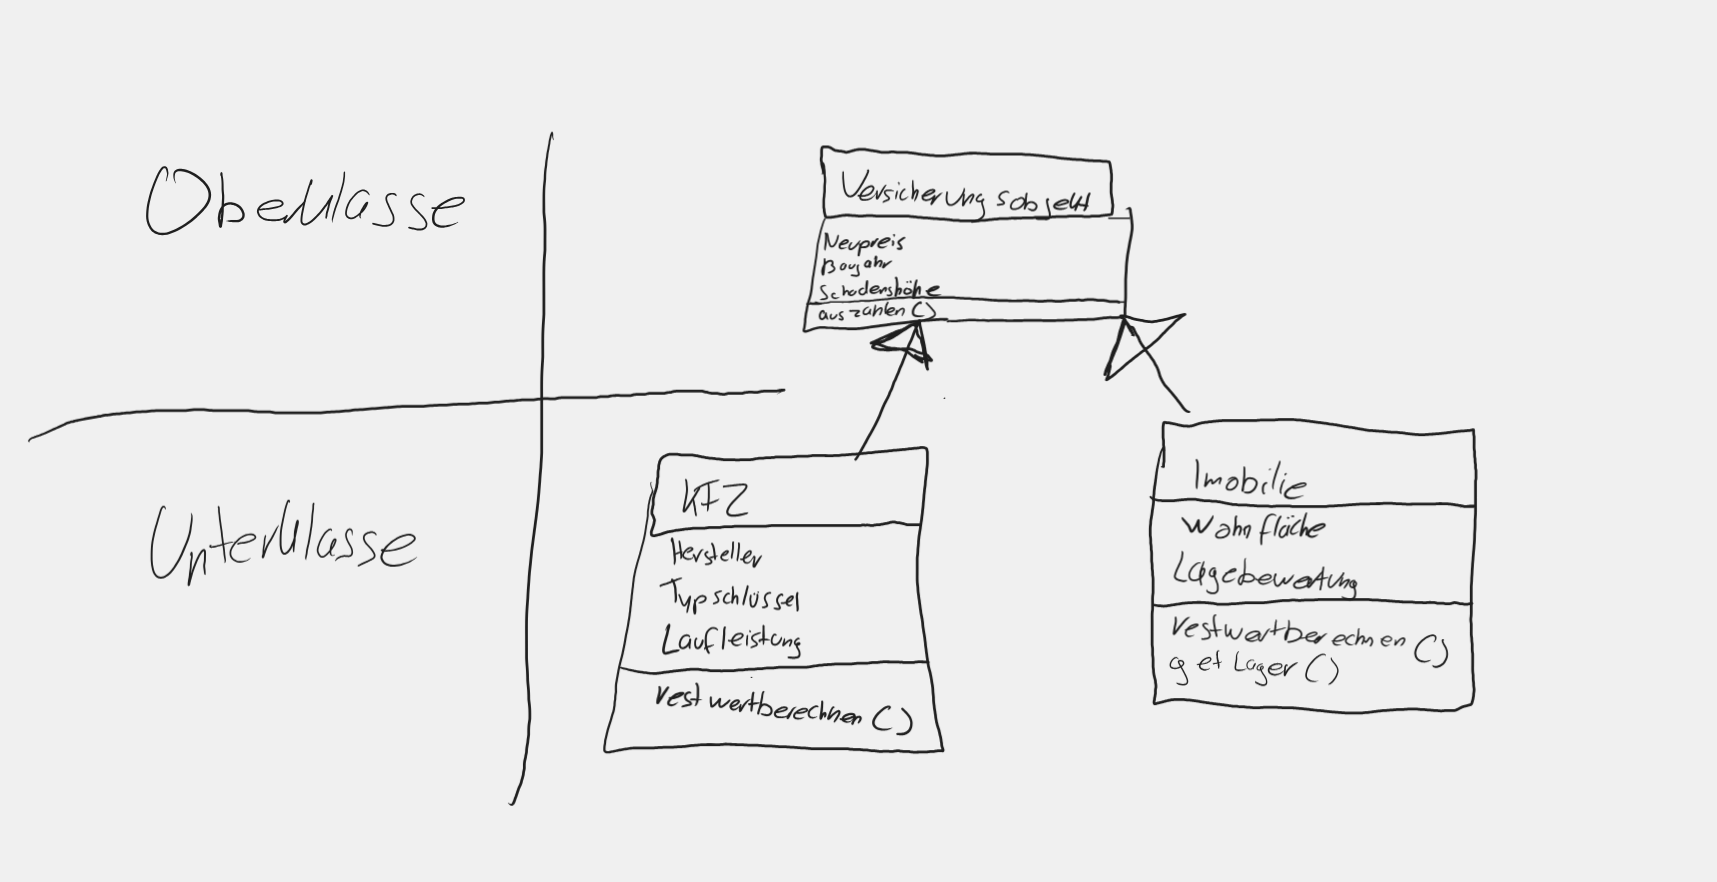 Oberklasse
Versicherungsobjekt
Neupreis
Baujahr
Schadenshöhe
auszahlen ()
Unterklasse
KFZ
Hersteller
Typschlüssel
Laufleistung
restwertberechnen ()
Imobilie
Wohnfläche
Lagebewertung
restwertberechnen ()
getLager ()